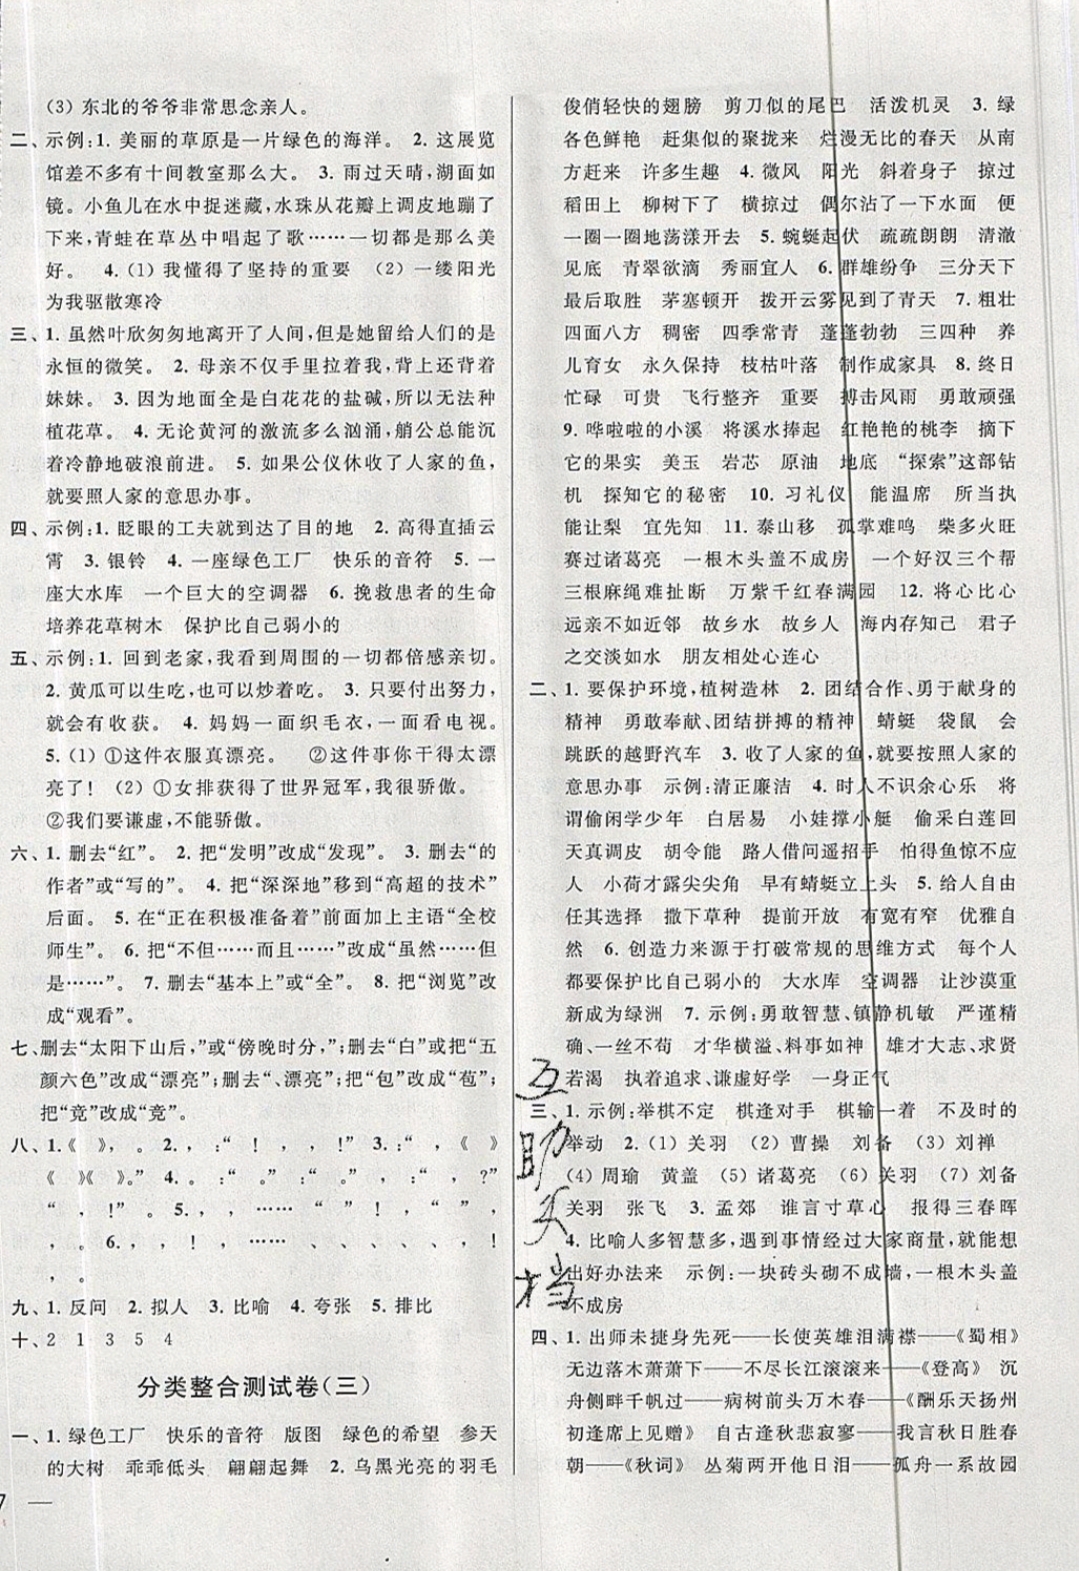 (3) 东北的爷爷非常思念亲人。
二、示例:1. 美丽的草原是一片绿色的海洋。 2. 这展览
馆差不多有十间教室那么大。 3. 雨过天晴,湖面如
镜。小鱼儿在水中捉迷藏,水珠从花瓣上调皮地蹦了
下来,青蛙在草丛中唱起了歌……一切都是那么美
好。 4. (1) 我懂得了坚持的重要 (2) 一缕阳光
为我驱散寒冷
三、1. 虽然叶欣匆匆地离开了人间,但是她留给人们的是
永恒的微笑。 2. 母亲不仅手里拉着我,背上还背着
妹妹。 3. 因为地面全是白花花的盐碱,所以无法种
植花草。 4. 无论黄河的激流多么汹涌,艄公总能沉
着冷静地破浪前进。 5. 如果公仪休收了人家的鱼,
就要照人家的意思办事。
四、示例:1. 眨眼的工夫就到达了目的地 2. 高得直插云
霄 3. 银铃 4. 一座绿色工厂 快乐的音符 5. 一
座大水库 一个巨大的空调器 6. 挽救患者的生命
培养花草树木 保护比自己弱小的
五、示例:1. 回到老家,我看到周围的一切都倍感亲切。
2. 黄瓜可以生吃,也可以炒着吃。 3. 只要付出努力,
就会有收获。 4. 妈妈一面织毛衣,一面看电视。
5. (1) ①这件衣服真漂亮。 ②这件事你干得太漂
亮了! (2) ①女排获得了世界冠军,我很骄傲。
②我们要谦虚,不能骄傲。
六、1. 删去“红”。 2. 把“发明”改成“发现”。 3. 删去“的
作者”或“写的”。 4. 把“深深地”移到“高超的技术”
后面。 5. 在“正在积极准备着”前面加上主语“全校
师生”。 6. 把“不但……而且……”改成“虽然……但
是……”。 7. 删去“基本上”或“全”。 8. 把“浏览”改
成“观看”。
七、删去“太阳下山后,”或“傍晚时分,”;删去“白”或把“五
颜六色”改成“漂亮”;删去“、漂亮”;把“包”改成“苞”;
把“竞”改成“竟”。
八、1.《 》, 。 2. , :“ ! , , !” 3. :“ ,《 》
《 》《 》。” 4. 。 :“ 。” :“ 。” :“ , ,?”
“ , !” 。 5. , , …… “ ” ! ,“ ” ,
, 。 6. , , ! , …… 、 、 、 、 , !
, 。
九、1. 反问 2. 拟人 3. 比喻 4. 夸张 5. 排比
十、2 1 3 5 4
分类整合测试卷(三)
一、1. 绿色工厂 快乐的音符 版图 绿色的希望 参天
的大树 乖乖低头 翩翩起舞 2. 乌黑光亮的羽毛
俊俏轻快的翅膀 剪刀似的尾巴 活泼机灵 3. 绿
各色鲜艳 赶集似的聚拢来 烂漫无比的春天 从南
方赶来 许多生趣 4. 微风 阳光 斜着身子 掠过
稻田上 柳树下了 横掠过 偶尔沾了一下水面 便
一圈一圈地荡漾开去 5. 蜿蜒起伏 疏疏朗朗 清澈
见底 青翠欲滴 秀丽宜人 6. 群雄纷争 三分天下
最后取胜 茅塞顿开 拨开云雾见到了青天 7. 粗壮
四面八方 稠密 四季常青 蓬蓬勃勃 三四种 养
儿育女 永久保持 枝枯叶落 制作成家具 8. 终日
忙碌 可贵 飞行整齐 重要 搏击风雨 勇敢顽强
9. 哗啦啦的小溪 将溪水捧起 红艳艳的桃李 摘下
它的果实 美玉 岩芯 原油 地底 “探索”这部钻
机 探知它的秘密 10. 习礼仪 能温席 所当执
能让梨 宜先知 11. 泰山移 孤掌难鸣 柴多火旺
赛过诸葛亮 一根木头盖不成房 一个好汉三个帮
三根麻绳难扯断 万紫千红春满园 12. 将心比心
远亲不如近邻 故乡水 故乡人 海内存知己 君子
之交淡如水 朋友相处心连心
二、1. 要保护环境,植树造林 2. 团结合作、勇于献身的
精神 勇敢奉献、团结拼搏的精神 蜻蜓 袋鼠 会
跳跃的越野汽车 3. 收了人家的鱼,就要按照人家的
意思办事 示例:清正廉洁 4. 时人不识余心乐 将
谓偷闲学少年 白居易 小娃撑小艇 偷采白莲回
天真调皮 胡令能 路人借问遥招手 怕得鱼惊不应
人 小荷才露尖尖角 早有蜻蜓立上头 5. 给人自由
任其选择 撒下草种 提前开放 有宽有窄 优雅自
然 6. 创造力来源于打破常规的思维方式 每个人
都要保护比自己弱小的 大水库 空调器 让沙漠重
新成为绿洲 7. 示例:勇敢智慧、镇静机敏 严谨精
确、一丝不苟 才华横溢、料事如神 雄才大志、求贤
若渴 执着追求、谦虚好学 一身正气
三、1. 示例:举棋不定 棋逢对手 棋输一着 不及时的
举动 2. (1) 关羽 (2) 曹操 刘备 (3) 刘禅
(4) 周瑜 黄盖 (5) 诸葛亮 (6) 关羽 (7) 刘备
关羽 张飞 3. 孟郊 谁言寸草心 报得三春晖
4. 比喻人多智慧多,遇到事情经过大家商量,就能想
出好办法来 示例:一块砖头砌不成墙,一根木头盖
不成房
四、1. 出师未捷身先死——长使英雄泪满襟——《蜀相》
无边落木萧萧下——不尽长江滚滚来——《登高》 沉
舟侧畔千帆过——病树前头万木春——《酬乐天扬州
初逢席上见赠》 自古逢秋悲寂寥——我言秋日胜春
朝——《秋词》 丛菊两开他日泪——孤舟一系故园
互
助
文
档
7 —